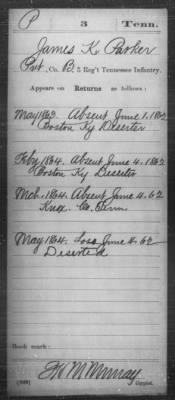 P 3 Tenn.
James K Parker
Pvt., Co. B, 3 Reg't Tennessee Infantry.
Appears on Returns as follows:
May 1863. Absent June 1, 1862
Boston Ky Deserter
Feby 1864. Absent June 4. 1862
Boston Ky Deserter
Mch. 1864. Absent June 4. 62
Knox Co. Tenn.
May 1864. Loss June 4. 62
Deserted
Book mark:
M Murray
Copyist.